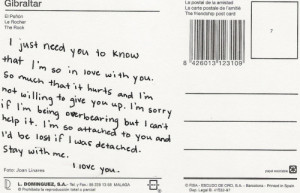 Gibraltar
El Peñón
Le Rocher
The Rock
I just need you to know
that I'm so in love with you.
So much that it hurts and I'm
not willing to give you up. I'm sorry
if I'm being overbearing but I can't
help it. I'm so attached to you and
I'd be lost if I was detached.
Stay with me.
I love you.
Foto: Juan Lliveres
L. DOMINGUEZ, S.A. - Tel. y Fax.: MALAGA
Prohibida la reproducción total o parcial
La postal de la amistad
La carte postale de l'amitié
The friendship post card
8 426013 123109
7
ESCUDO DE ORO, S.A. - Barcelona - Printed in Spain
Dep. Legal B.